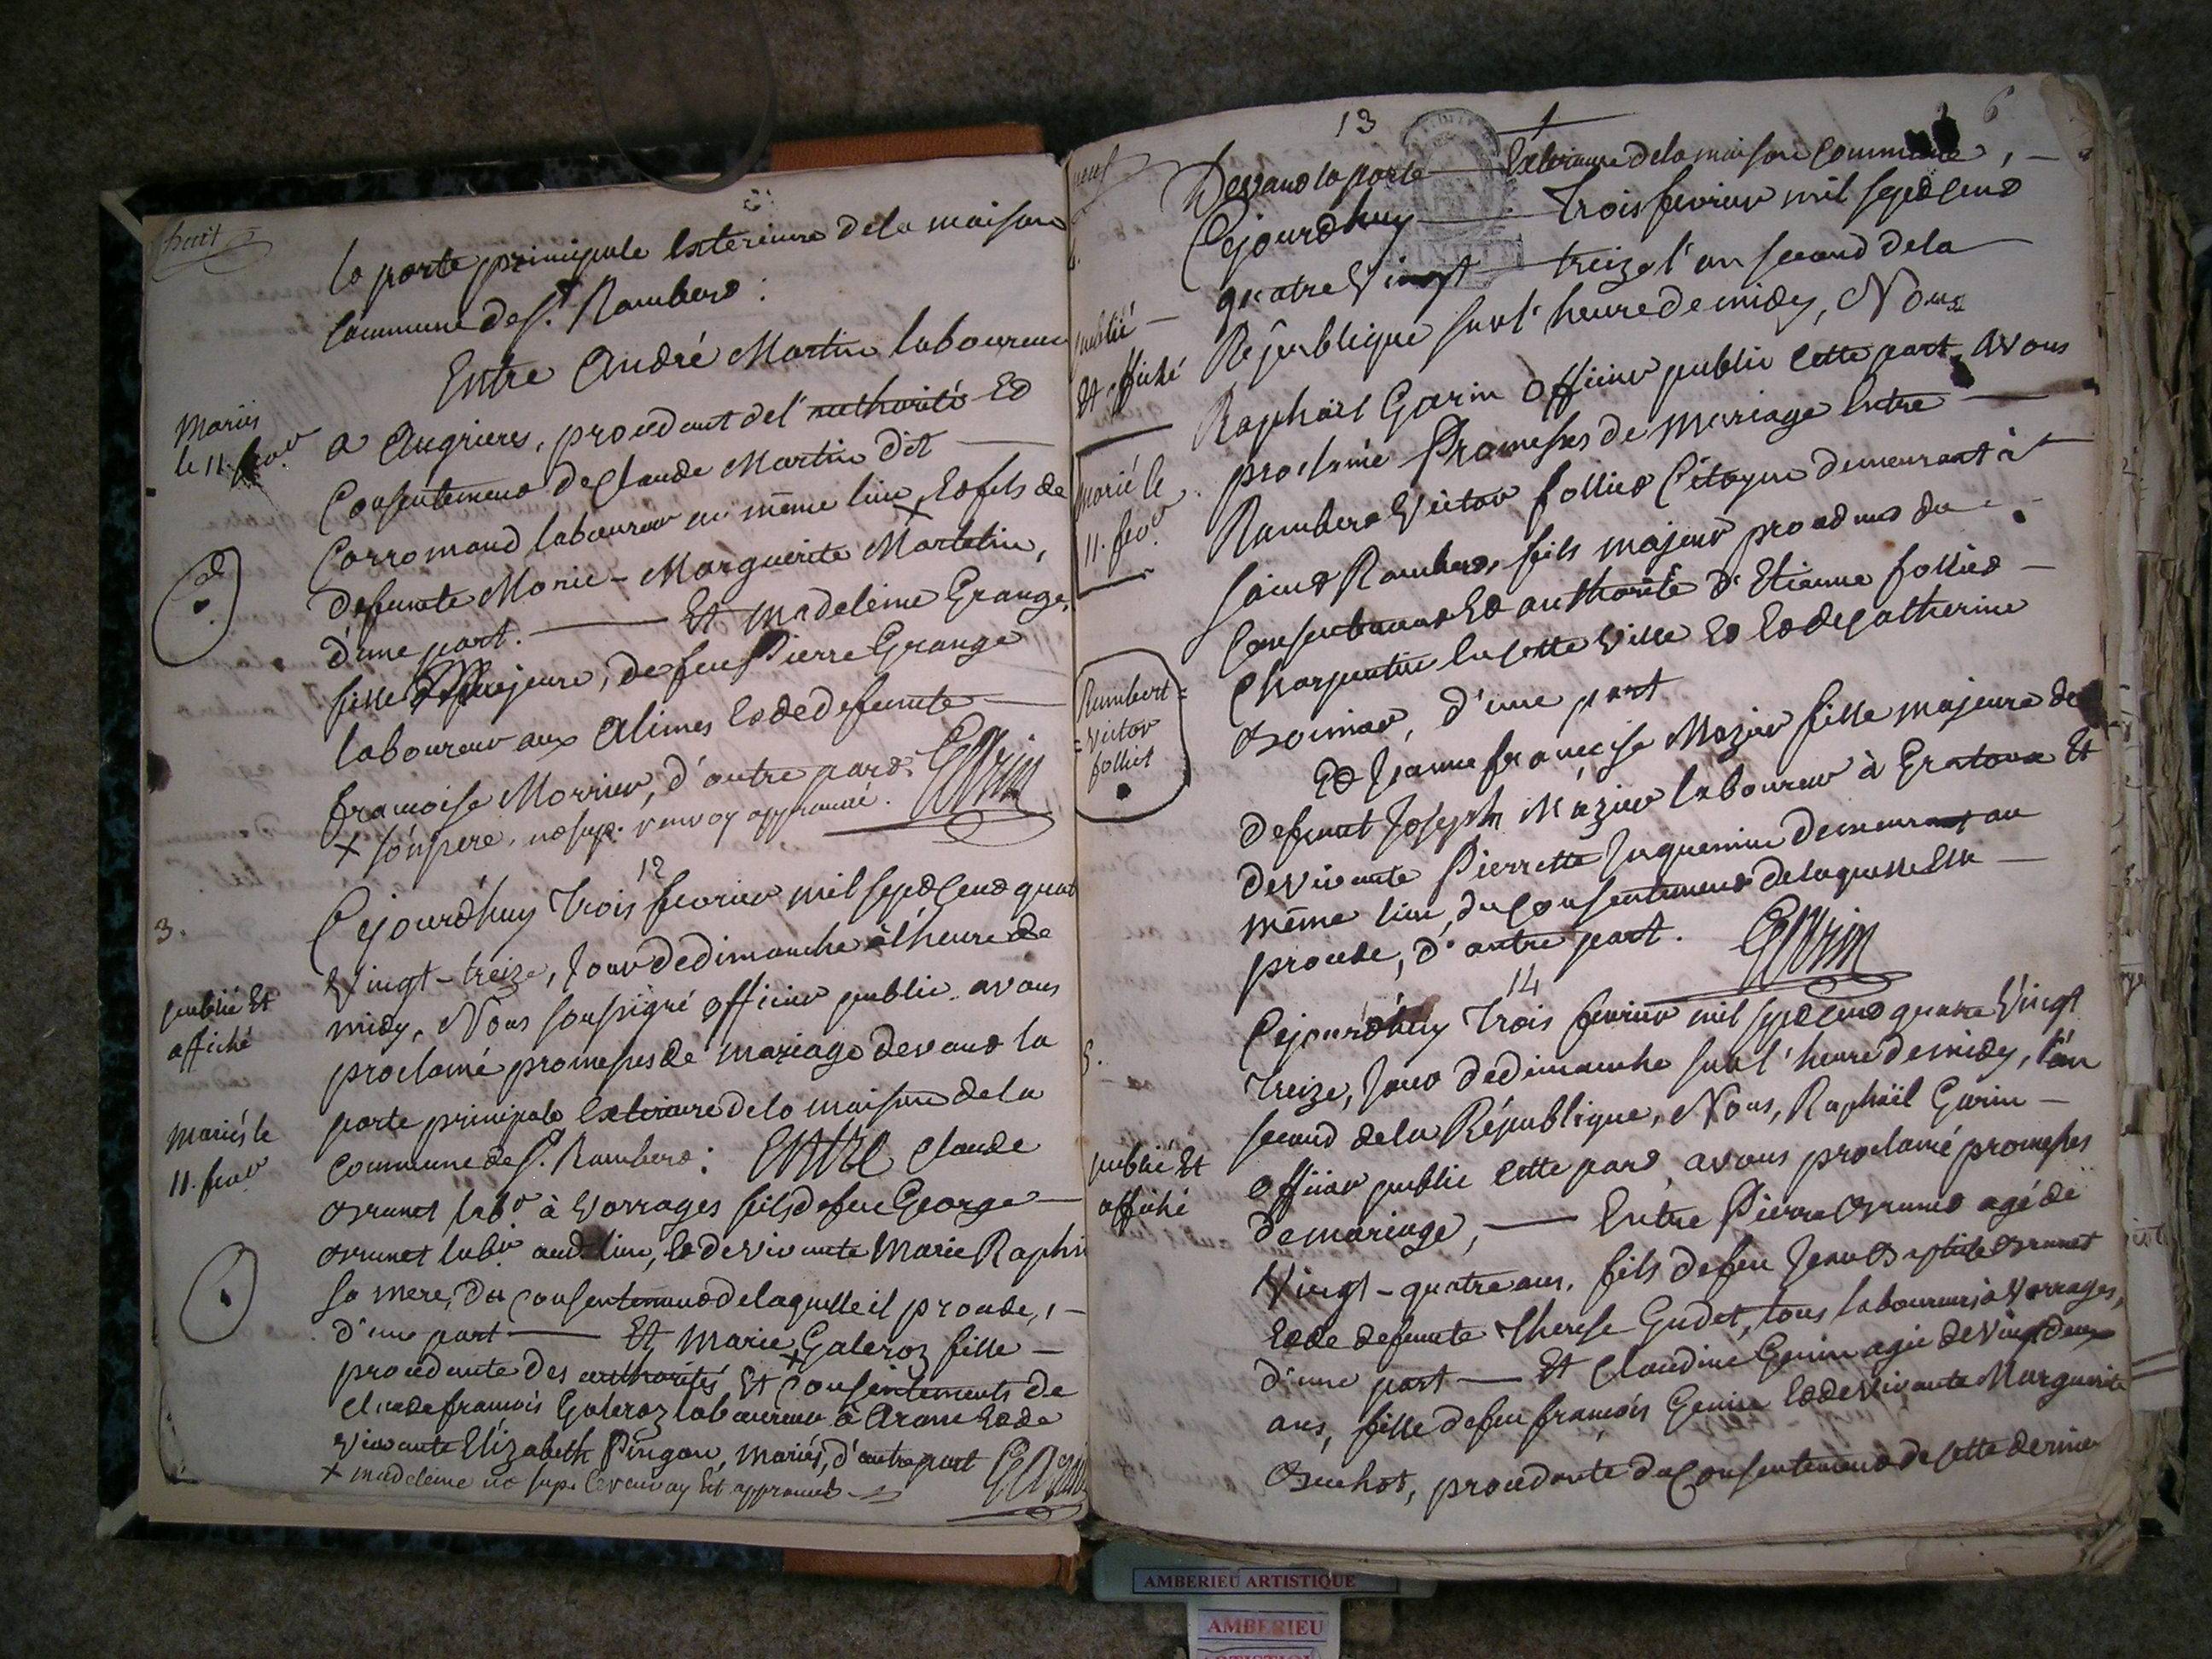 huit
la porte principale Exterieure de la maison
Commune de St. Rambert :
Entre André Martin laboureur
Mariés
le 11. fevr
a Angrieres, procedant de l'authorité Et
Consentement de Claude Martin dit
Corromand laboureur au même lieu + Et fils de
defunte Marie-Marguerite Martelin,
d'une part. Et Madeleine Grange,
fille majeure, de feu Pierre Grange
laboureur aux alimes Et de defunte
francoise Morrier, d'autre part. GARin
+ son pere, ne sup. renvoy approuvé.
12
3.
Cejourd'huy Trois fevrier mil sept Cent quat
Vingt-treize, Jour de dimanche à l'heure de
publié Et
affiché
midy, Nous soussigné officier public avons
proclamé promesses de mariage devant la
porte principale Exterieure de la maison de la
Mariés le
11. fevr
Commune de St. Rambert : ENTRE Claude
Brunet labr. à Vorrages fils de feu George
Brunet labr. audt lieu, Et de vivante Marie Raphin
sa mere, du Consentement de laquelle il procede,
d'une part Et Marie + Galeroz fille
procedante des authorités Et Consentements de
Claude françois Galeroz laboureur à Aranc Et de
vivante Elizabeth Pingon, mariés, d'autre part GARin
+ madeleine ne sup. le renvoy Est approuvé
neuf
13
6
Devant la porte Exterieure de la maison Commune,
Cejourd'huy Trois fevrier mil sept Cent
quatre Vingt treize l'an second de la
publié
Et affiché
Republique sur l'heure de midy, Nous
Raphaël Garin officier public Cette part, avons
proclamé Promesses de Mariage Entre
Marié le
11. fevr
Rambert Victor folliet Citoyen demeurant à
Saint Rambert, fils majeur procedant du
Consentement Et authorité d'Etienne folliet
Charpentier En Cette Ville Et de Catherine
Rambert
Victor
folliet
Boimar, d'une part
Et Jeanne francoise Mazuir fille majeure de
defunt Joseph Mazuir laboureur à Gratoux Et
de vivante Pierrette Juquemin demeurant au
même lieu, du Consentement de laquelle Elle
procede, d'autre part. GARin
14
5.
Cejourd'huy Trois fevrier mil sept Cent quatre Vingt
Treize, Jour de dimanche sur l'heure de midy, l'an
second de la République, Nous, Raphaël Garin
publié Et
affiché
officier public Cette part, avons proclamé promesses
de mariage, Entre Pierre Brunet agé de
Vingt-quatre ans, fils de feu Jean Baptiste Brunet
Et de defunte Therese Gudet, tous laboureurs à Vorrages,
d'une part Et Claudine Genin agée de Vingt deux
ans, fille de feu françois Genin Et de vivante Marguerite
Buchot, procedante du Consentement de Cette derniere
AMBERIEU ARTISTIQUE
AMBERIEU
ARTISTIQUE